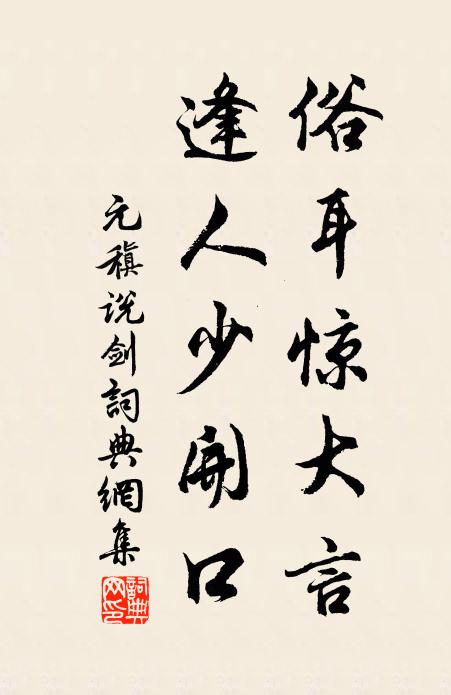 俗耳惊大言
逢人少開口
元稹说剑詞典網集
詞典网印